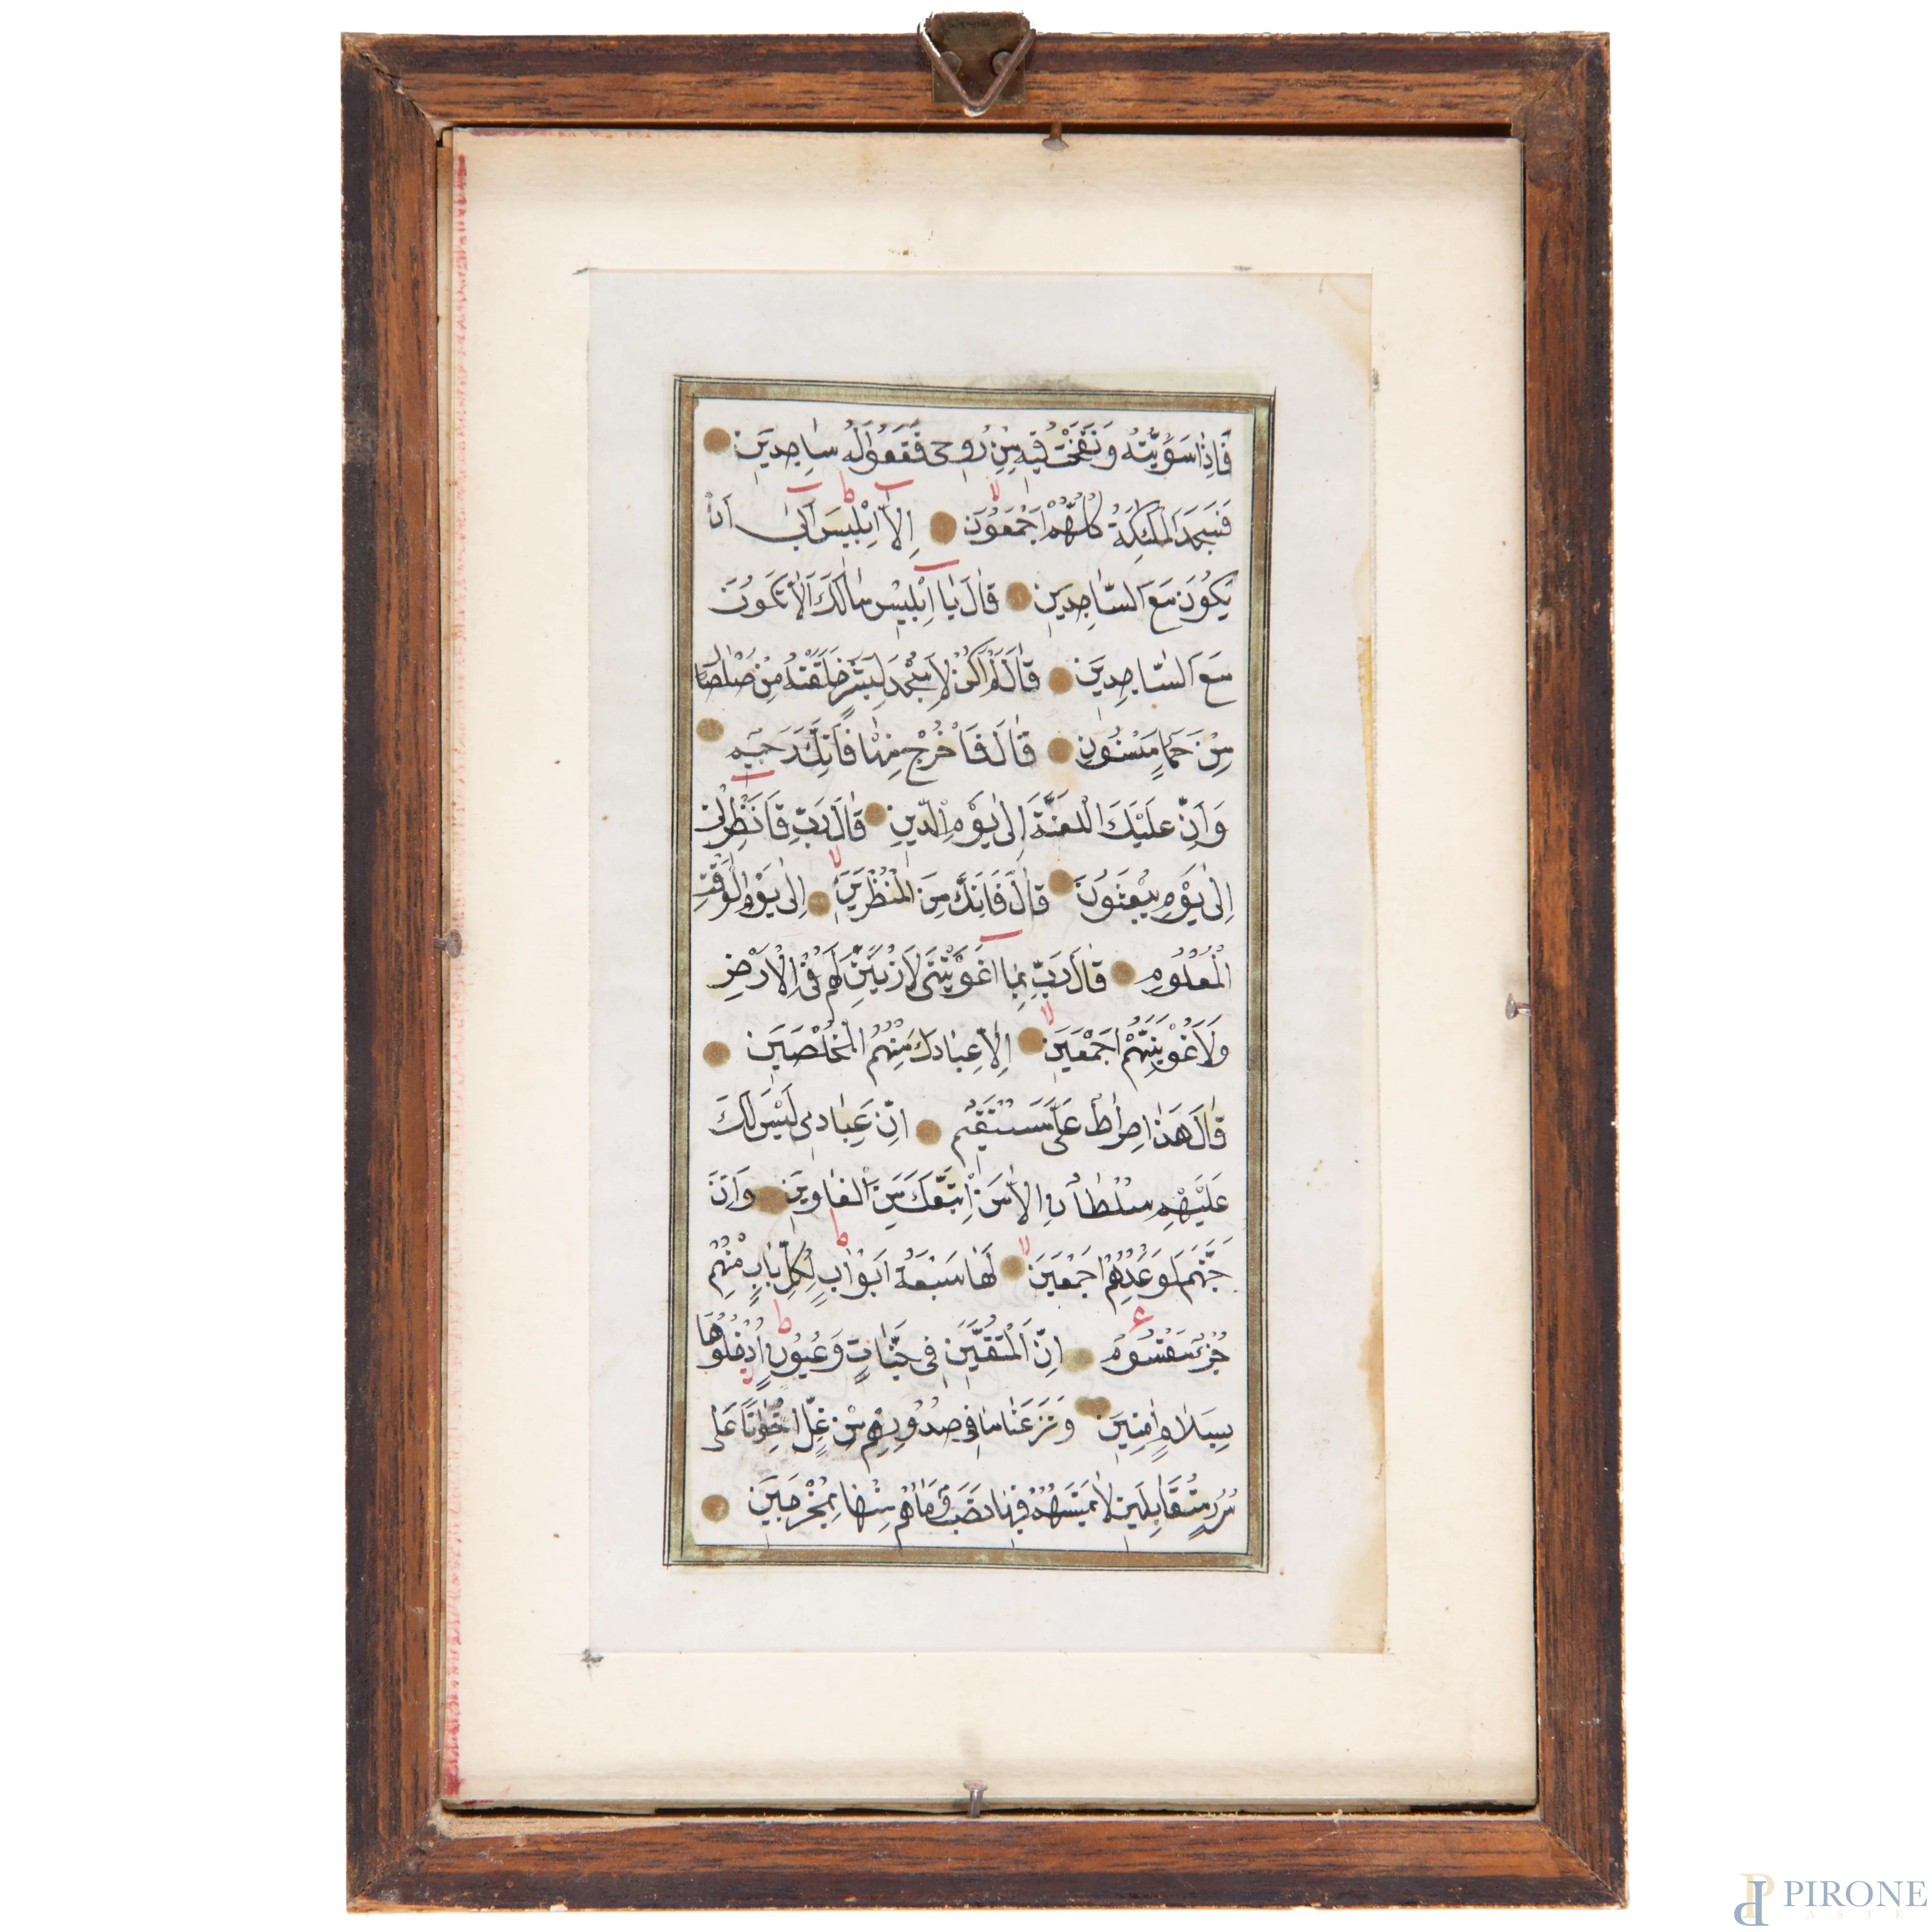 فَاِذَا سَوَّيْتُهُ وَنَفَخْتُ فِيهِ مِنْ رُوحِى فَقَعُوا لَهُ سَاجِدِينَ
فَسَجَدَ الْمَلٰئِكَةُ كُلُّهُمْ اَجْمَعُونَ اِلَّا اِبْلِيسَ اَبٰى اَنْ
يَكُونَ مَعَ السَّاجِدِينَ قَالَ يَا اِبْلِيسُ مَالَكَ اَلَّا تَكُونَ
مَعَ السَّاجِدِينَ قَالَ لَمْ اَكُنْ لِاَسْجُدَ لِبَشَرٍ خَلَقْتَهُ مِنْ صَلْصَالٍ
مِنْ حَمَاٍ مَسْنُونٍ قَالَ فَاخْرُجْ مِنْهَا فَاِنَّكَ رَجِيمٌ
وَاِنَّ عَلَيْكَ اللَّعْنَةَ اِلٰى يَوْمِ الدِّينِ قَالَ رَبِّ فَاَنْظِرْنِى
اِلٰى يَوْمِ يُبْعَثُونَ قَالَ فَاِنَّكَ مِنَ الْمُنْظَرِينَ اِلٰى يَوْمِ الْوَقْتِ
الْمَعْلُومِ قَالَ رَبِّ بِمَا اَغْوَيْتَنِى لَاُزَيِّنَنَّ لَهُمْ فِى الْاَرْضِ
وَلَاُغْوِيَنَّهُمْ اَجْمَعِينَ اِلَّا عِبَادَكَ مِنْهُمُ الْمُخْلَصِينَ
قَالَ هَذَا صِرَاطٌ عَلَىَّ مُسْتَقِيمٌ اِنَّ عِبَادِى لَيْسَ لَكَ
عَلَيْهِمْ سُلْطَانٌ اِلَّا مَنِ اتَّبَعَكَ مِنَ الْغَاوِينَ وَاِنَّ
جَهَنَّمَ لَمَوْعِدُهُمْ اَجْمَعِينَ لَهَا سَبْعَةُ اَبْوَابٍ لِكُلِّ بَابٍ مِنْهُمْ
جُزْءٌ مَقْسُومٌ اِنَّ الْمُتَّقِينَ فِى جَنَّاتٍ وَعُيُونٍ اُدْخُلُوهَا
بِسَلَامٍ اٰمِنِينَ وَنَزَعْنَا مَا فِى صُدُورِهِمْ مِنْ غِلٍّ اِخْوَانًا عَلٰى
سُرُرٍ مُتَقَابِلِينَ لَا يَمَسُّهُمْ فِيهَا نَصَبٌ وَمَا هُمْ مِنْهَا بِمُخْرَجِينَ
PIRONE
ASTE